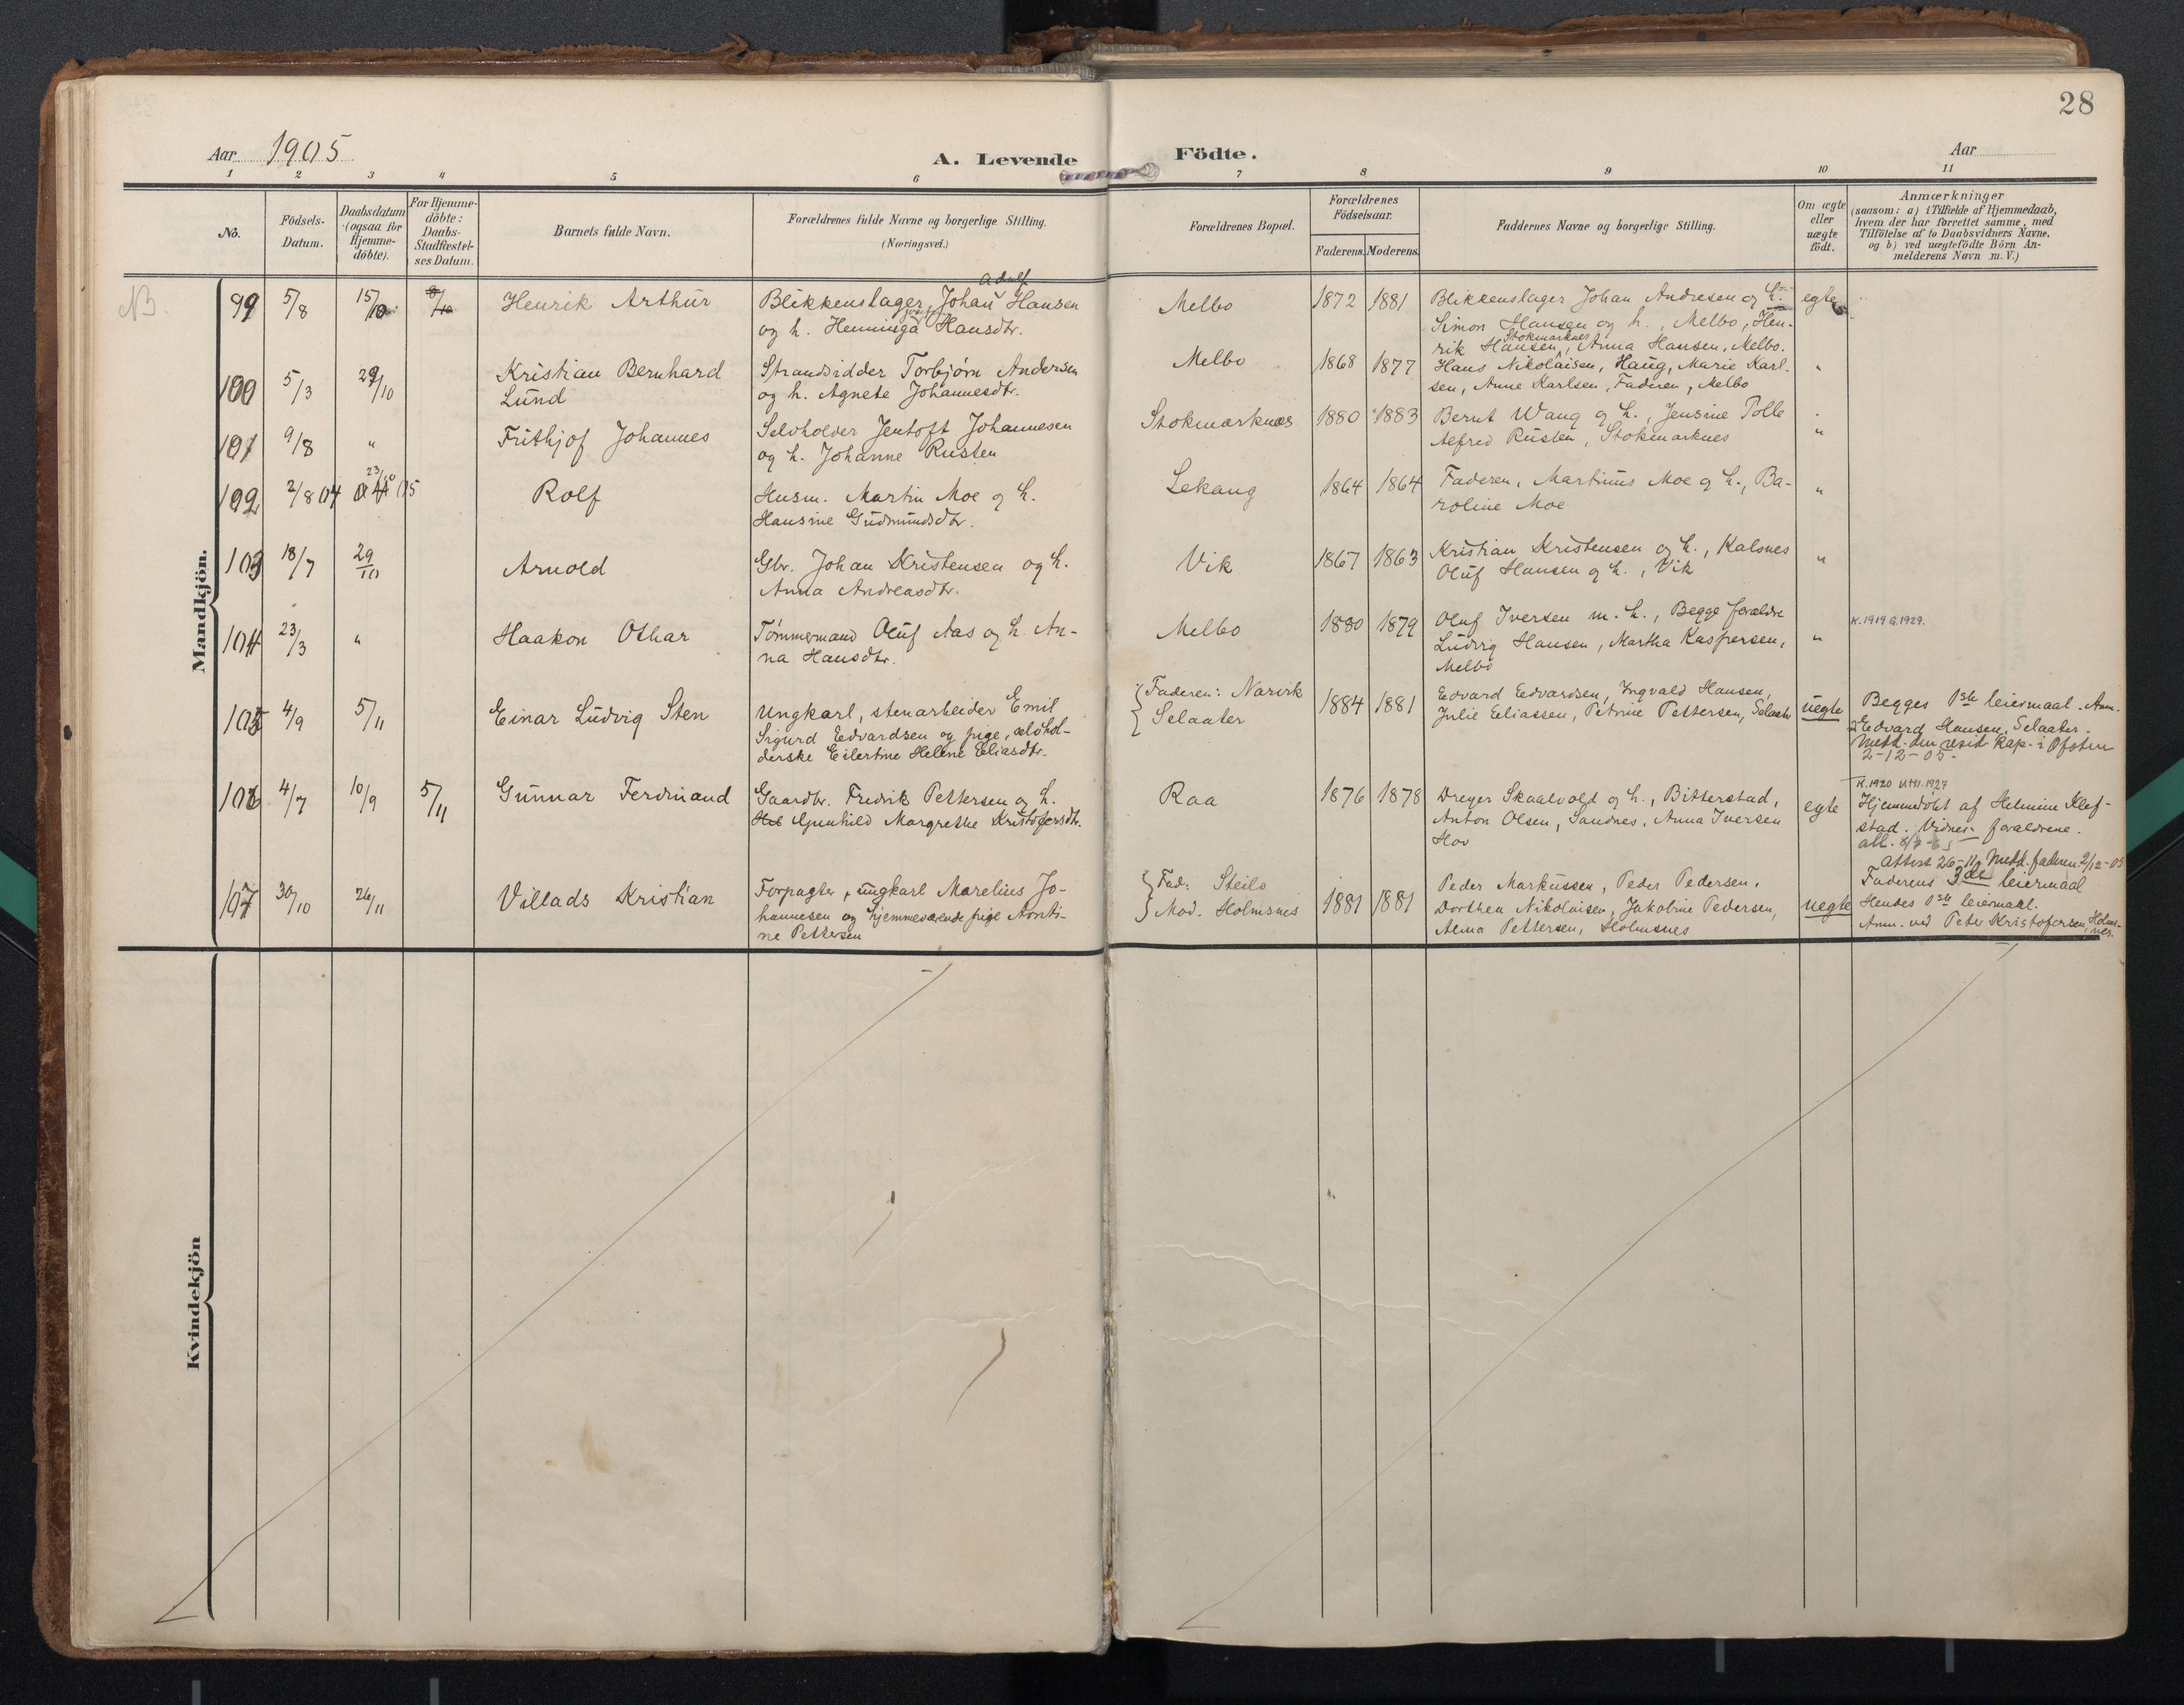 28
Aar 1905
A. Levende Födte.
Aar
1 2 3 4 5 6 7 8 9 10 11
No.
Födsels-
Datum.
Daabsdatum
(ogsaa for
Hjemme-
döbte).
For Hjemme-
döbte:
Daabs-
Stadfæstel-
ses Datum.
Barnets fulde Navn.
Forældrenes fulde Navne og borgerlige Stilling.
(Næringsvei.)
Forældrenes Bopæl.
Forældrenes
Födselsaar.
Faderens. Moderens.
Faddernes Navne og borgerlige Stilling.
Om ægte
eller
uægte
födt.
Anmærkninger
(saasom: a) i Tilfælde af Hjemmedaab,
hvem der har forrettet samme, med
Tilföielse af to Daabsvidners Navne,
og b) ved uægtefödte Börn An-
melderens Navn m. V.)
Mandkjön.
NB.
99 5/8 15/10 8/10 Henrik Arthur
Adolf
Blikkenslager Johan Hansen
og h. Henninga Hansdtr.
Melbo 1872 1881
Blikkenslager Johan Andresen og h.
Simon Hansen og h., Melbo, Hen-
Stokmarknes
rik Hansen, Anna Hansen, Melbo.
egte
100 5/3 29/10 Kristian Bernhard
Lund
Strandsidder Torbjørn Andersen
og h. Agnete Johannesdtr.
Melbo 1868 1877
Hans Nikolaisen, Haug, Marie Karl-
sen, Anne Karlsen, Faderen, Melbo
"
101 9/8 " Frithjof Johannes
Selvholder Jentoft Johannesen
og h. Johanne Rusten
Stokmarknes 1880 1883
Bernt Wang og h., Jensine Polle
Alfred Rusten, Stokmarknes
"
102 2/8 04 23/10 05 Rolf
Husm. Martin Moe og h.
Hansine Gudmundsdtr.
Lekang 1864 1864
Faderen, Martinus Moe og h., Ba-
roline Moe
"
103 18/7 29/10 Arnold
Gbr. Johan Kristensen og h.
Anna Andreasdtr.
Vik 1867 1863
Kristian Kristensen og h., Kalsnes
Oluf Hansen og h., Vik
"
104 23/3 " Haakon Othar
Tømmermand Oluf Aas og h. An-
na Hansdtr.
Melbo 1880 1879
Oluf Iversen m. h., Begge forældre
Ludvig Hansen, Martha Kaspersen,
Melbo
"
K. 1919 G. 1929.
105 4/9 5/11 Einar Ludvig Sten
Ungkarl, stenarbeider Emil
Sigurd Edvardsen og pige, selvhol-
derske Eilertine Helene Eliasdtr.
Faderen: Narvik
Selaater
1884 1881
Edvard Edvardsen, Ingvald Hansen,
Julie Eliassen, Petrine Pettersen, Selaater
uegte
Begges 1ste leiermaal. Anm.
Edvard Hansen, Selaater.
Medd. den resid. Kap. i Ofoten
2-12-05.
106 4/7 10/9 5/11 Gunnar Ferdinand
Gaardbr. Fredrik Pettersen og h.
Gunhild Margrethe Kristofersdtr.
Raa 1876 1878
Dreyer Skaalvold og h., Bitterstad,
Anton Olsen, Sandnes, Anna Iversen
Hov
egte
K. 1920 1927
Hjemmedöbt af Helmine Klef-
stad. Vidner: forældrene.
107 30/10 26/11 Villads Kristian
Forpagter, ungkarl Marelius Jo-
hannesen og hjemmeværende pige Aonti-
ne Pettersen
Fad: Steilo
Mod. Holmsnes
1881 1881
Peder Markussen, Peder Pedersen,
Dorthea Nikolaisen, Jakobine Pedersen,
Alma Pettersen, Holmsnes
uegte
Attest 26-11. Medd. faderen 2/12-05
Faderens 3die leiermaal
Hendes 1ste leiermaal.
Anm. ved Peter Kristofersen, Holms-
nes.
Kvindekjön